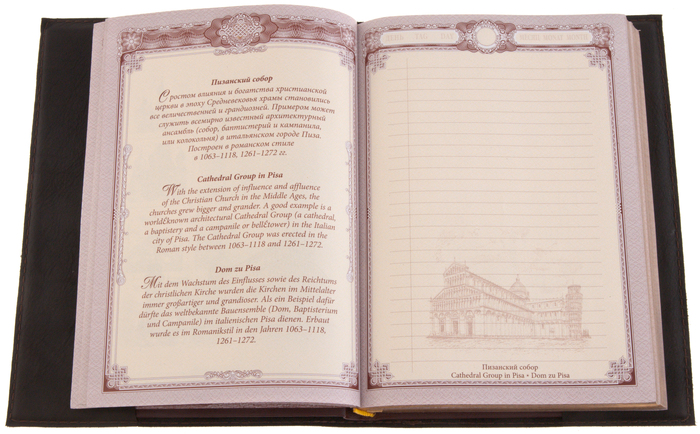 Пизанский собор
С ростом влияния и богатства христианской
церкви в эпоху Средневековья храмы становились
все величественней и грандиозней. Примером может
служить всемирно известный архитектурный
ансамбль (собор, баптистерий и кампанила,
или колокольня) в итальянском городе Пиза.
Построен в романском стиле
в 1063–1118, 1261–1272 гг.
Cathedral Group in Pisa
With the extension of influence and affluence
of the Christian Church in the Middle Ages, the
churches grew bigger and grander. A good example is a
world£known architectural Cathedral Group (a cathedral,
a baptistery and a campanile or bell£tower) in the Italian
city of Pisa. The Cathedral Group was erected in the
Roman style between 1063–1118 and 1261–1272.
Dom zu Pisa
Mit dem Wachstum des Einflusses sowie des Reichtums
der christlichen Kirche wurden die Kirchen im Mittelalter
immer großartiger und grandioser. Als ein Beispiel dafür
dürfte das weltbekannte Bauensemble (Dom, Baptisterium
und Campanile) im italienischen Pisa dienen. Erbaut
wurde es im Romanikstil in den Jahren 1063–1118,
1261–1272.
Пизанский собор
Cathedral Group in Pisa • Dom zu Pisa